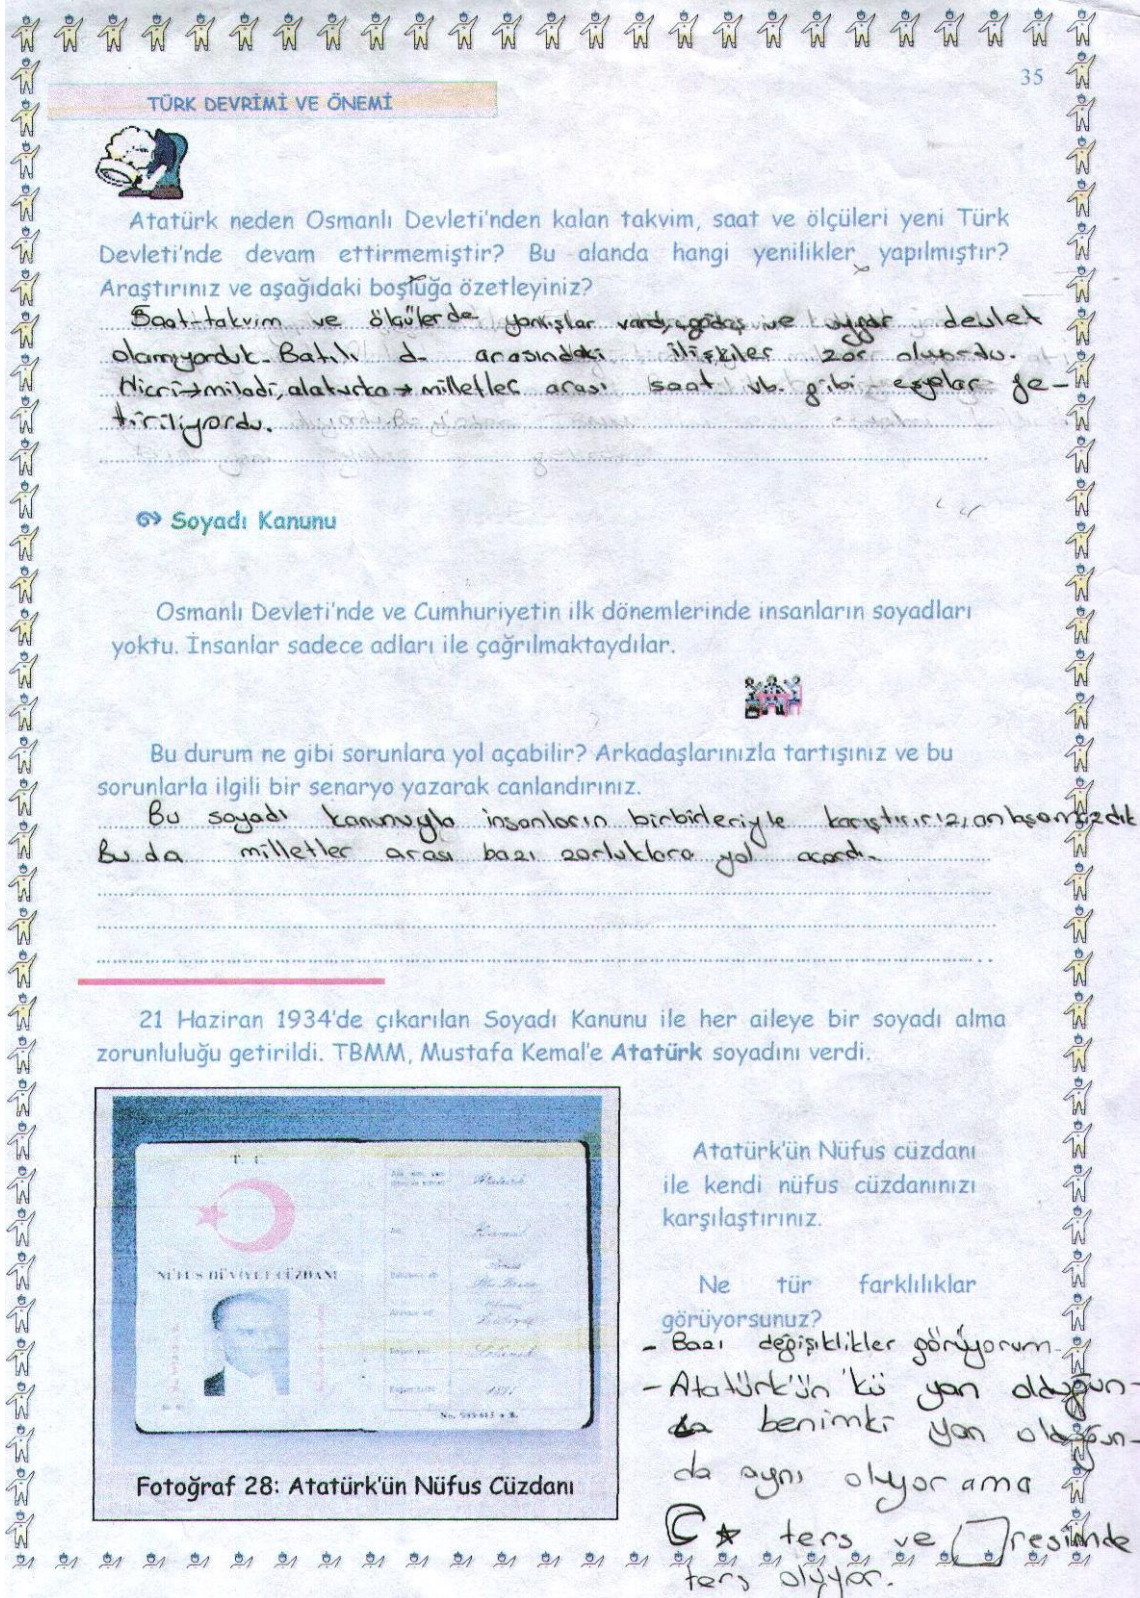 35
TÜRK DEVRİMİ VE ÖNEMİ
Atatürk neden Osmanlı Devleti'nden kalan takvim, saat ve ölçüleri yeni Türk
Devleti'nde devam ettirmemiştir? Bu alanda hangi yenilikler yapılmıştır?
Araştırınız ve aşağıdaki boşluğa özetleyiniz?
Saat-takvim ve ölçülerde yanlışlar vardı, çağdaş ve uygar devlet
olamıyorduk. Batılı d. arasındaki ilişkiler zor oluyordu.
Hicri→miladi, alaturka→milletler arası saat vb. gibi eşyalar ge-
tiriliyordu.
Soyadı Kanunu
Osmanlı Devleti'nde ve Cumhuriyetin ilk dönemlerinde insanların soyadları
yoktu. İnsanlar sadece adları ile çağrılmaktaydılar.
Bu durum ne gibi sorunlara yol açabilir? Arkadaşlarınızla tartışınız ve bu
sorunlarla ilgili bir senaryo yazarak canlandırınız.
Bu soyadı kanunuyla insanların birbirleriyle karıştırırız, anlaşamazdık
Bu da milletler arası bazı zorluklara yol açardı.
21 Haziran 1934'de çıkarılan Soyadı Kanunu ile her aileye bir soyadı alma
zorunluluğu getirildi. TBMM, Mustafa Kemal'e Atatürk soyadını verdi.
T. C.
NÜFUS HÜVİYET CÜZDANI
Atatürk
Kemal
Fotoğraf 28: Atatürk'ün Nüfus Cüzdanı
Atatürk'ün Nüfus cüzdanı
ile kendi nüfus cüzdanınızı
karşılaştırınız.
Ne tür farklılıklar
görüyorsunuz?
- Bazı değişiklikler görüyorum.
- Atatürk'ün'kü yan olduğun-
da benimki yan olduğun-
da aynı oluyor ama
ters ve resimde
ters oluyor.